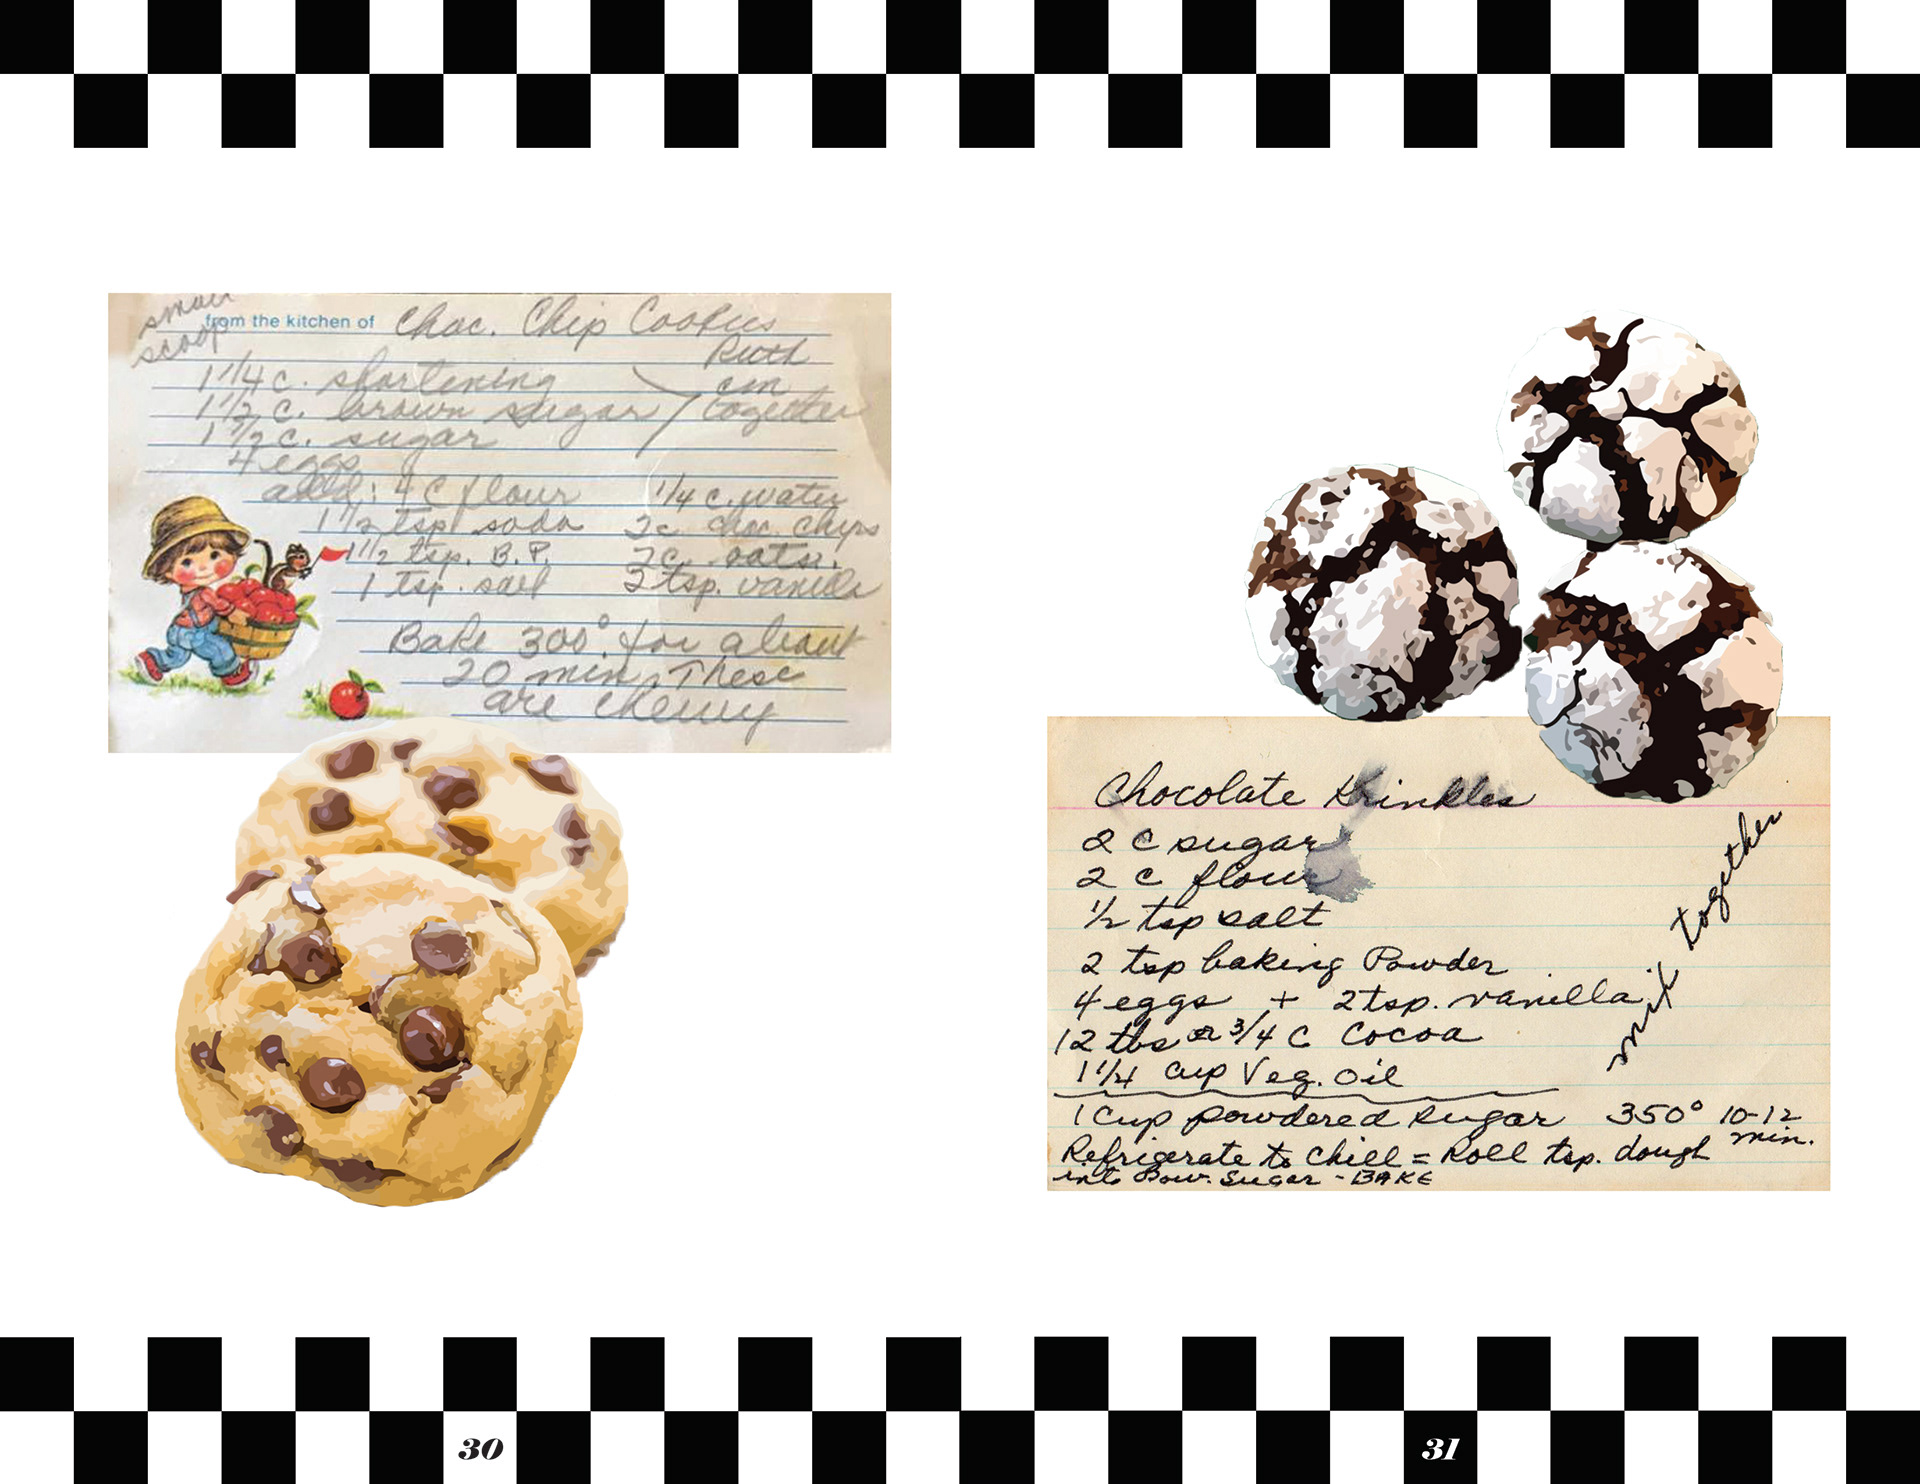 small
scoop
from the kitchen of Choc. Chip Cookies
Ruth
1 1/4 c. shortening
1 1/2 c. brown sugar
together
1 1/2 c. sugar
4 eggs
add: 4 c flour 1/4 c. water
1 1/2 tsp soda 2c choc. chips
1 1/2 tsp. B.P. 2c. oats.
1 tsp. salt 2 tsp. vanilla
Bake 300° for about
20 min. These
are chewy
Chocolate Krinkles
2 C sugar
2 C flour
1/2 tsp salt
2 tsp baking Powder
4 eggs + 2 tsp. vanilla
12 tbs or 3/4 C Cocoa
1 1/4 cup Veg. Oil
mix together
1 cup powdered sugar 350° 10-12
min.
Refrigerate to Chill = Roll tsp. dough
into Pow. Sugar - BAKE
30
31